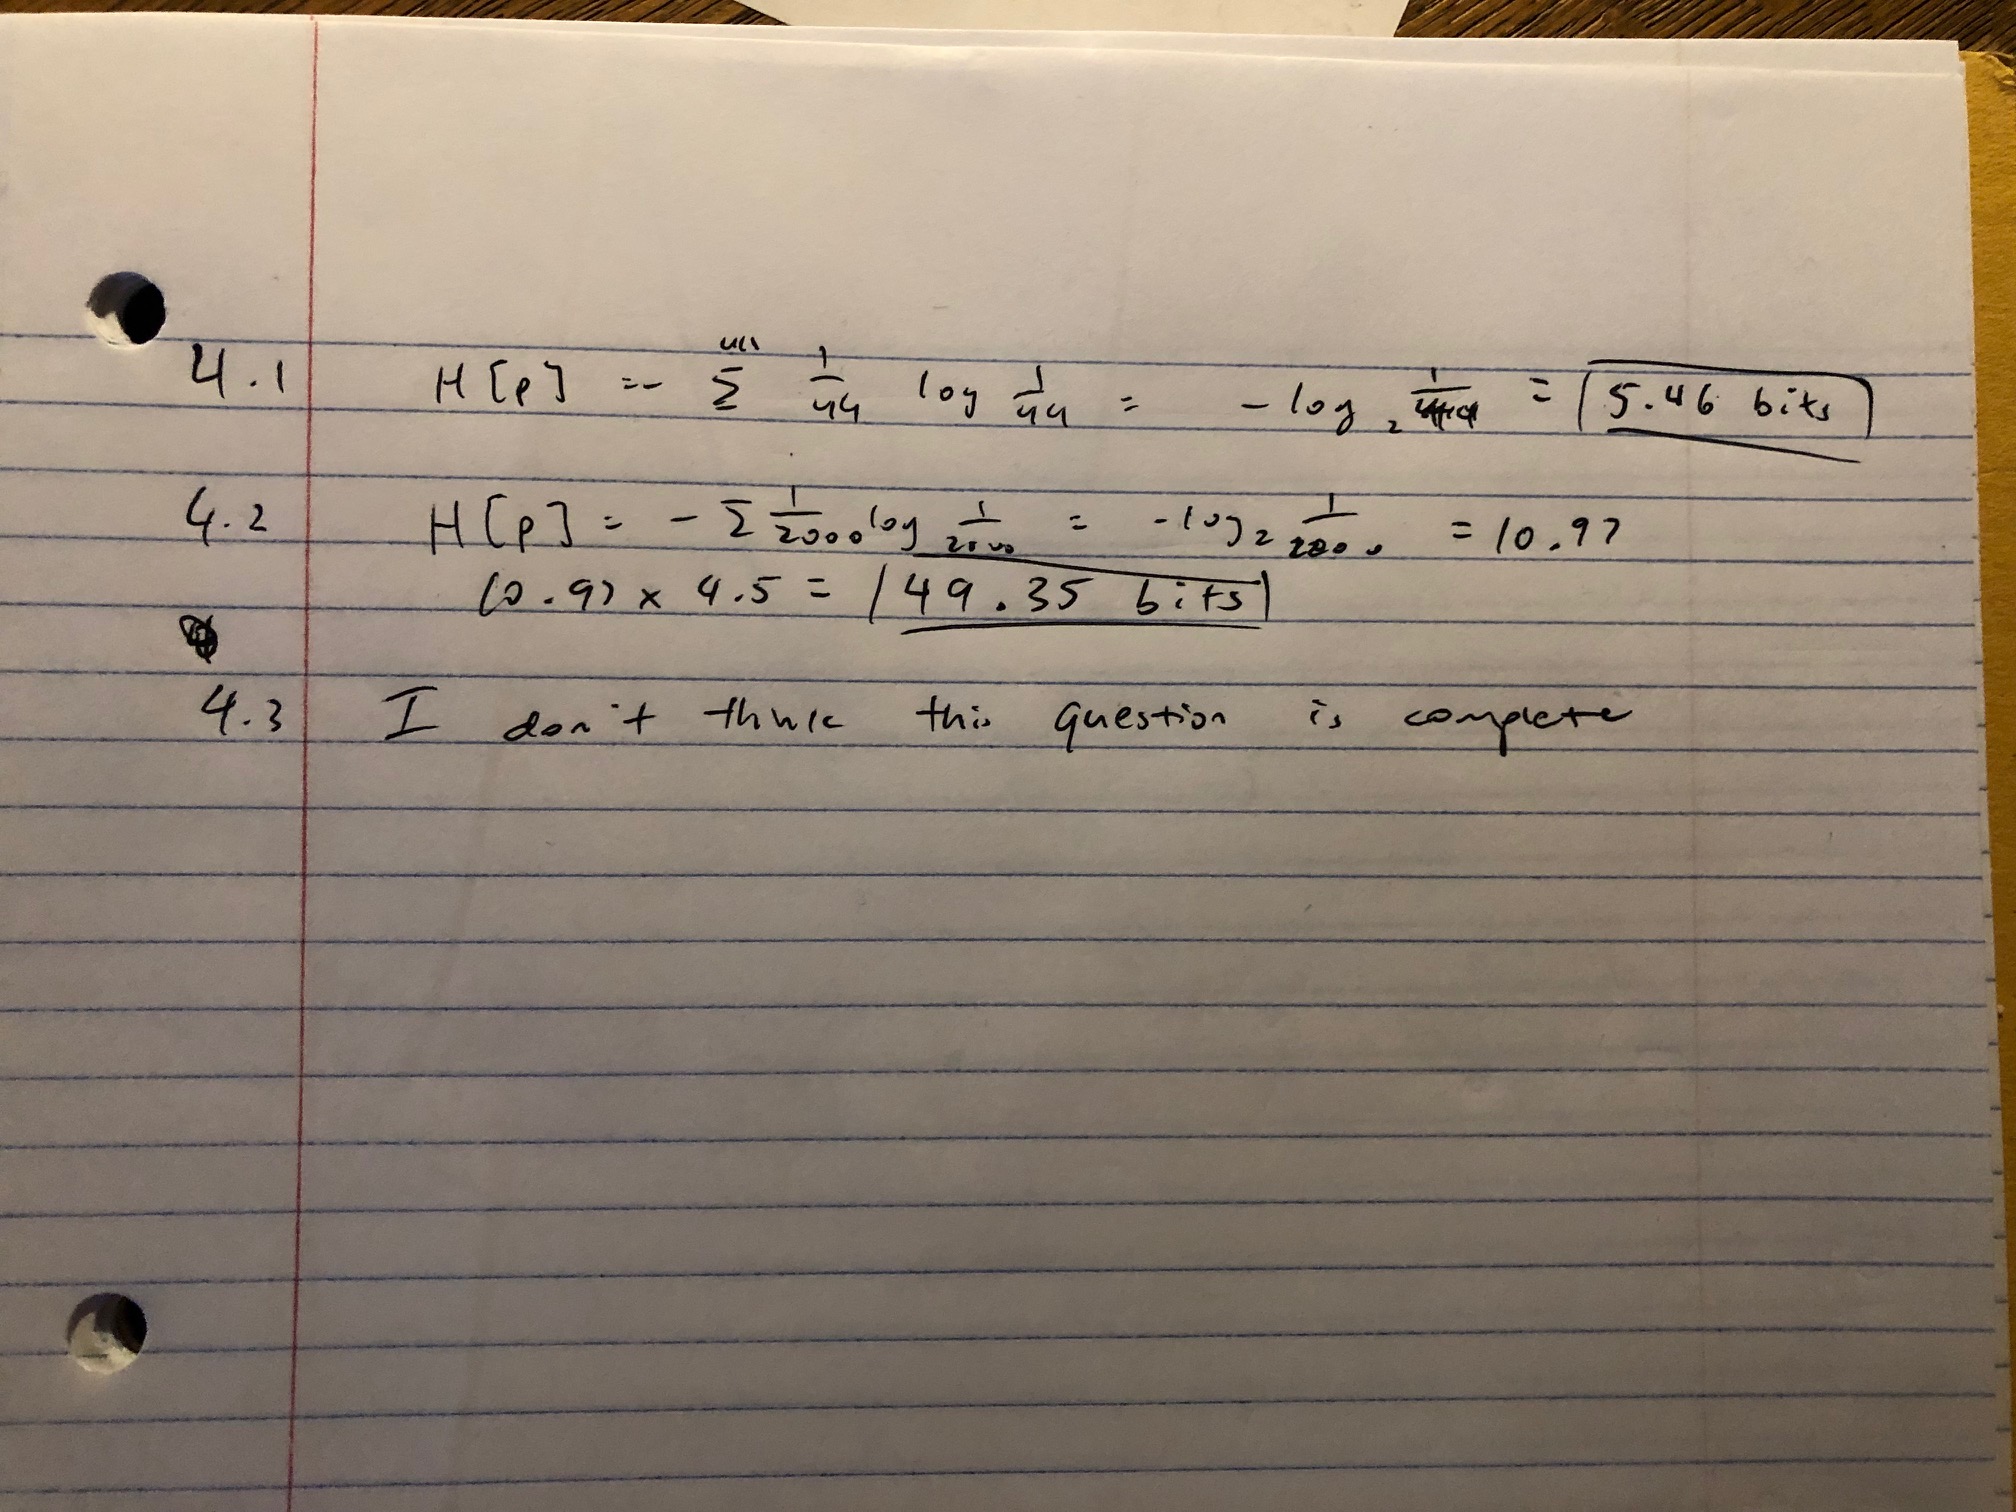 4.1 H[p] = - Σ 1/44 log 1/44 = - log₂ 1/44 = 5.46 bits
4.2 H[p] = - Σ 1/2000 log 1/2000 = -log₂ 1/2000 = 10.97
10.97 x 4.5 = 49.35 bits
4.3 I don't think this question is complete